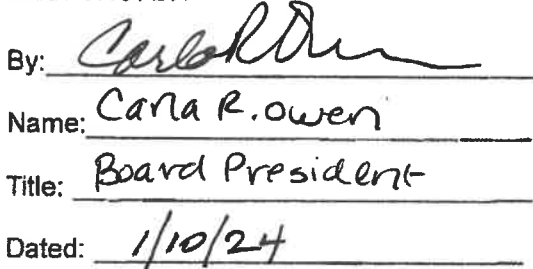 By: Carla R Owen
Name: Carla R. Owen
Title: Board President
Dated: 1/10/24